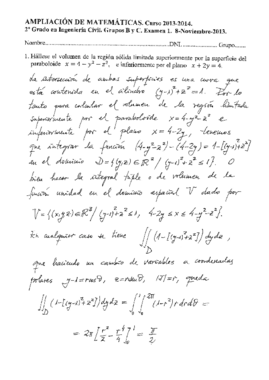 AMPLIACIÓN DE MATEMÁTICAS. Curso 2013-2014.
2º Grado en Ingeniería Civil. Grupos B y C. Examen 1. 8-Noviembre-2013.
Nombre..........DNI..........Grupo.....
1. Hállese el volumen de la región sólida limitada superiormente por la superficie del
paraboloide x = 4 − y² − z², e inferiormente por el plano x + 2y = 4.
La intersección de ambas superficies es una curva que
está contenida en el cilindro (y-1)²+z²=1. Por lo
tanto para calcular el volumen de la región limitada
superiormente por el paraboloide x=4-y²-z² e
inferiormente por el plano x=4-2y, tenemos
que integrar la función (4-y²-z²)-(4-2y)=1-[(y-1)²+z²]
en el dominio D={(y,z)∈ℝ² / (y-1)²+z²≤1}. O
bien hacer la integral triple o de volumen de la
función unidad en el dominio espacial V dado por
V={(x,y,z)∈ℝ³ / (y-1)²+z²≤1, 4-2y≤x≤4-y²-z²}.
En cualquier caso se tiene ∬_D (1-[(y-1)²+z²])dydz,
que haciendo un cambio de variables a coordenadas
polares y-1=r cosθ, z=r senθ, |J|=r, queda
∬_D (1-[(y-1)²+z²])dydz = ∫₀¹∫₀^2π (1-r²) r dr dθ =
= 2π[r²/2 - r⁴/4]₀¹ = π/2